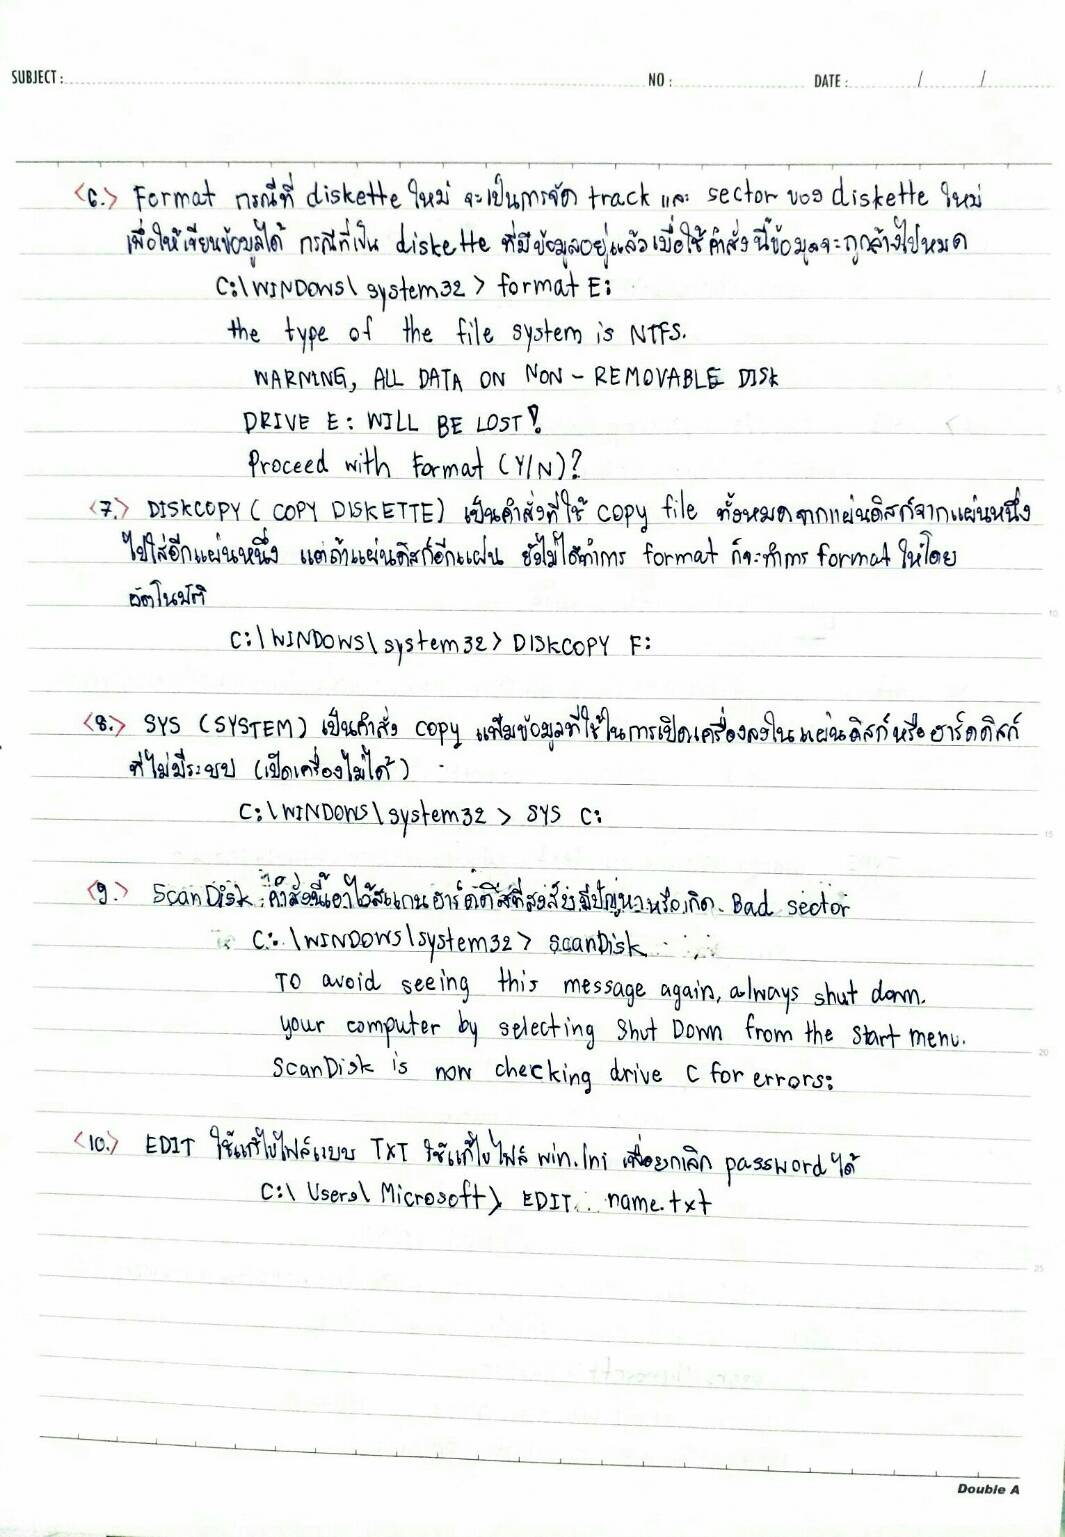 SUBJECT : NO : DATE : / /
<6.> Format กรณีที่ diskette ใหม่ จะเป็นการจัด track และ sector ของ diskette ใหม่
เพื่อให้เขียนข้อมูลได้ กรณีที่เป็น diskette ที่มีข้อมูลอยู่แล้วเมื่อใช้คำสั่งนี้ข้อมูลจะถูกล้างไปหมด
C:\WINDOWS\ system32 > format E:
the type of the file system is NTFS.
WARNING, ALL DATA ON NON - REMOVABLE DISK
DRIVE E: WILL BE LOST!
Proceed with Format (Y/N)?
<7.> DISKCOPY ( COPY DISKETTE) เป็นคำสั่งที่ใช้ COPY file ทั้งหมดจากแผ่นดิสก์จากแผ่นหนึ่ง
ไปใส่อีกแผ่นหนึ่ง แต่ถ้าแผ่นดิสก์อีกแผ่น ยังไม่ได้ทำการ format ก็จะทำการ format ให้โดย
อัตโนมัติ
C:\WINDOWS\system32> DISKCOPY F:
<8.> SYS (SYSTEM) เป็นคำสั่ง copy แฟ้มข้อมูลที่ใช้ในการเปิดเครื่องลงในแผ่นดิสก์หรือฮาร์ดดิสก์
ที่ไม่มีระบบ (เปิดเครื่องไม่ได้)
C:\WINDOWS\system32 > SYS C:
<9.> ScanDisk คำสั่งนี้เอาไว้สแกนฮาร์ดดิสที่สงสัยมีปัญหาหรือเกิด Bad sector
C:\WINDOWS\system32 > ScanDisk
TO avoid seeing this message again, always shut down.
your computer by selecting Shut Down from the Start menu.
ScanDisk is now checking drive C for errors:
<10.> EDIT ใช้แก้ไขไฟล์แบบ TXT ใช้แก้ไขไฟล์ win.Ini เพื่อยกเลิก password ได้
C:\ Users\ Microsoft> EDIT name.txt
5
10
15
20
25
Double A